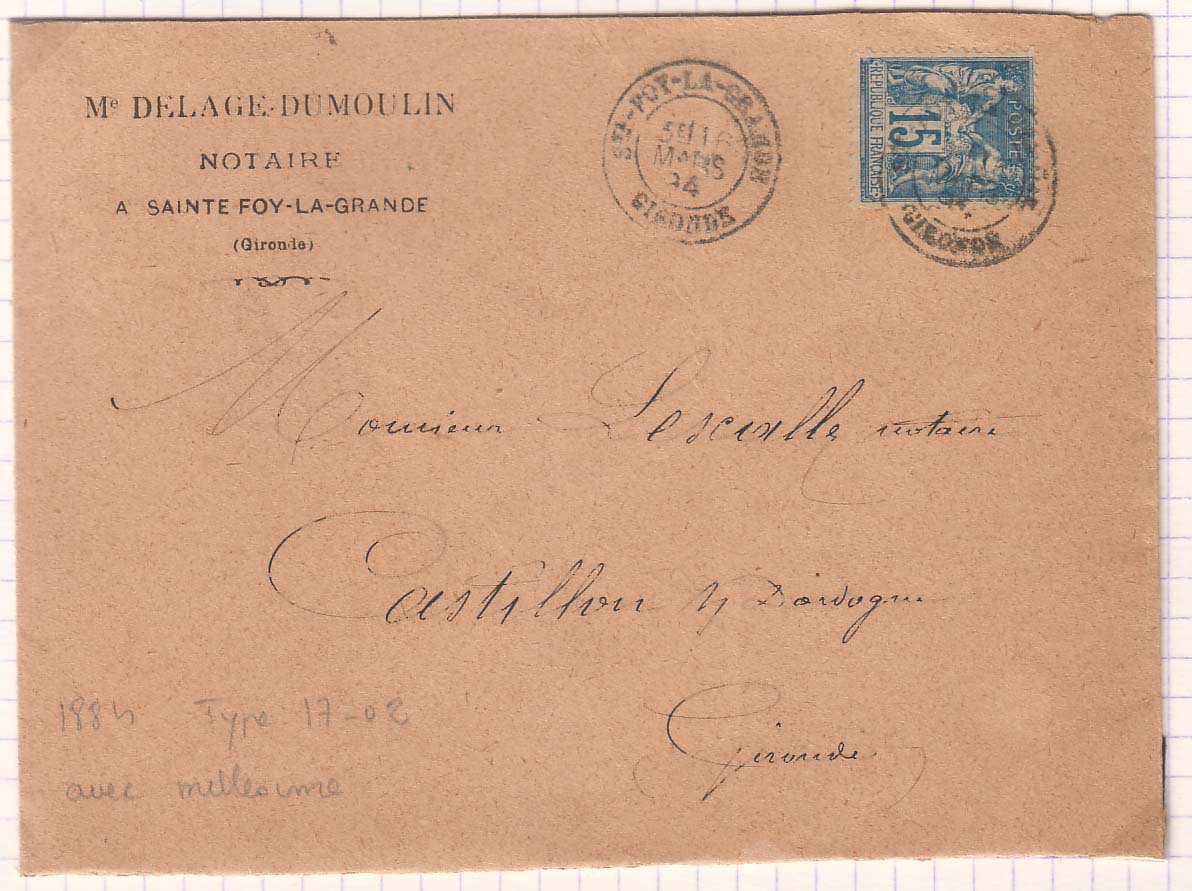 Me DELAGE-DUMOULIN
NOTAIRE
A SAINTE FOY-LA-GRANDE
(Gironde)
STE-FOY-LA-GRANDE
16
MARS
94
GIRONDE
REPUBLIQUE FRANÇAISE
15
POSTES
94
GIRONDE
Monsieur notaire
Castillon s/ Dordogne
Gironde
1884 Type 17-02
avec millesime